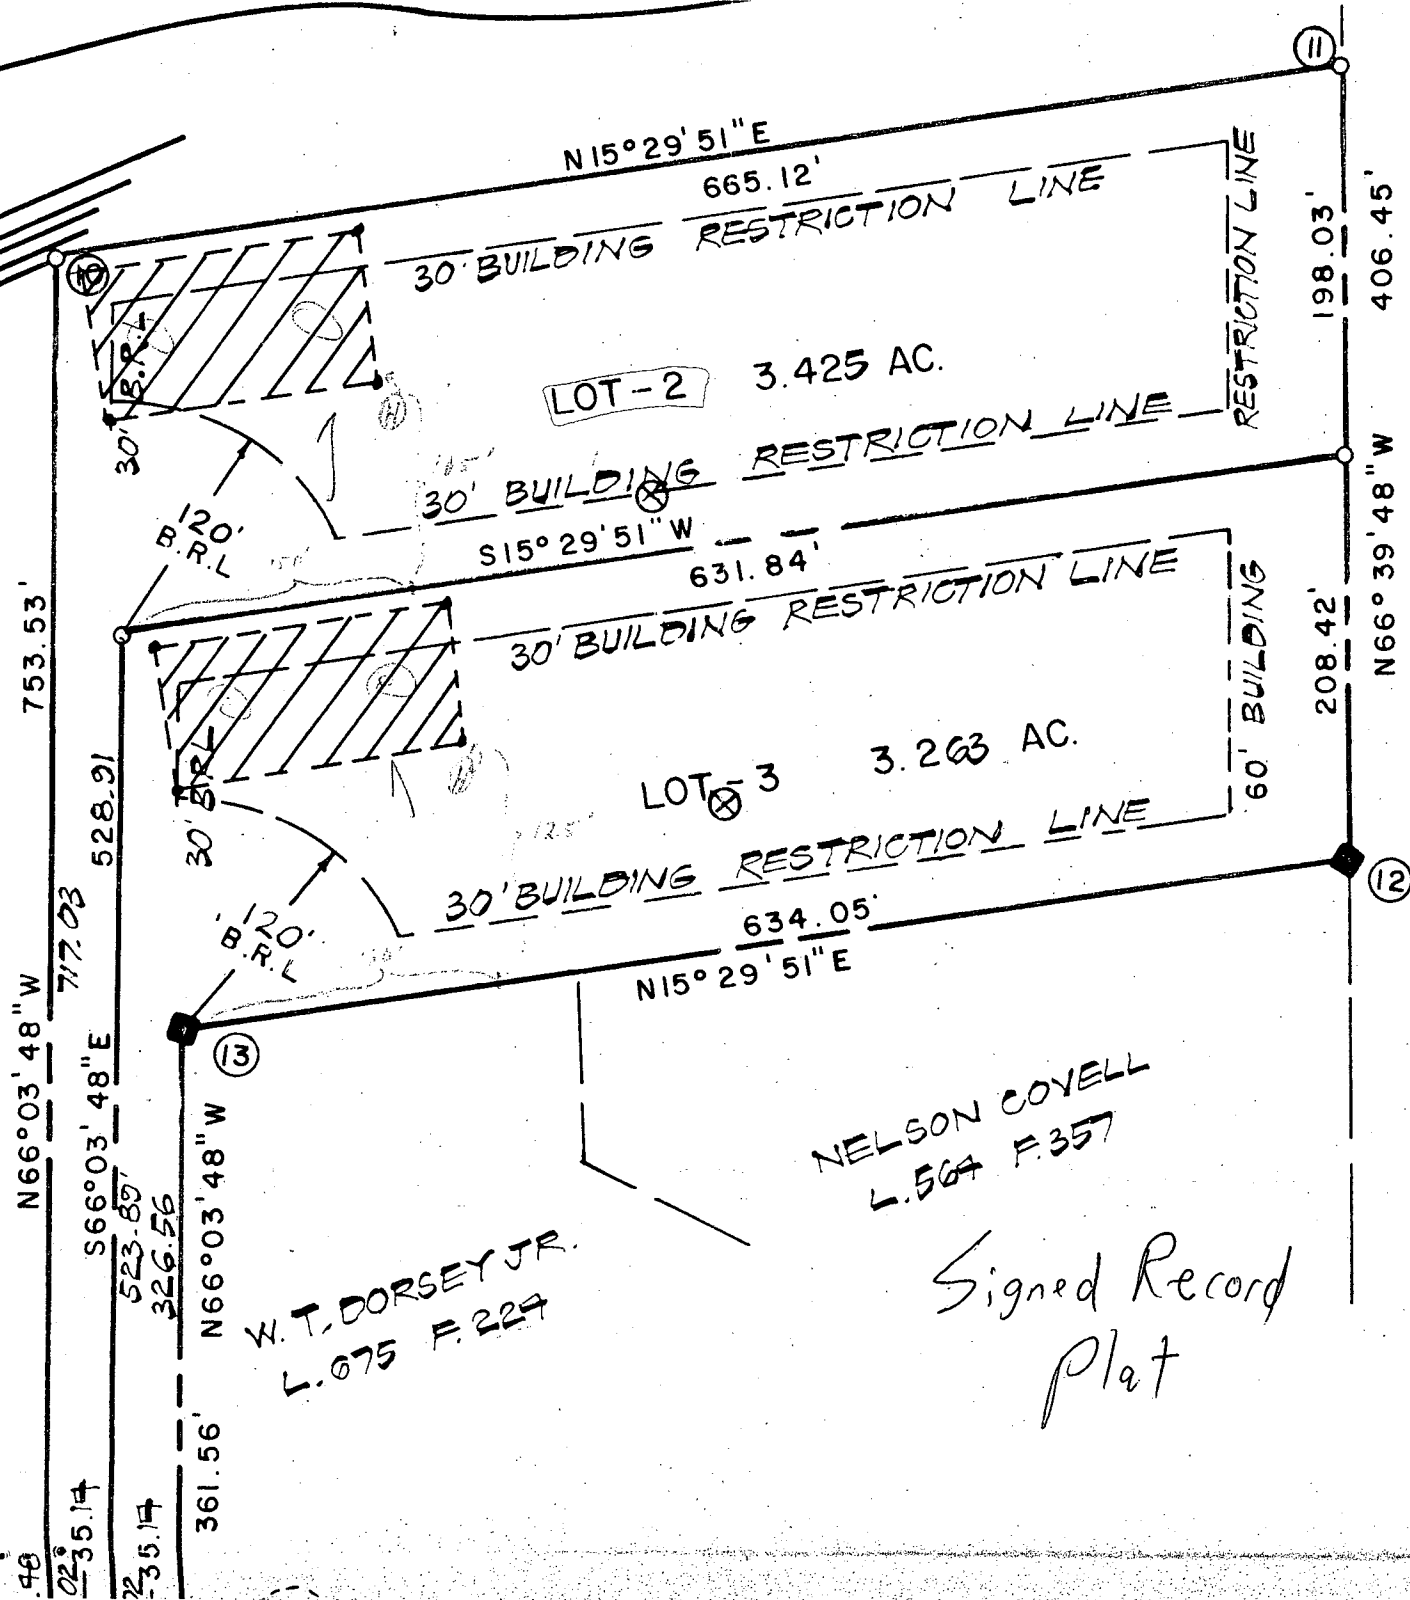 11
N15°29'51"E
665.12'
30' BUILDING RESTRICTION LINE
RESTRICTION LINE
198.03'
406.45'
30' B.R.L
LOT-2 3.425 AC.
H
30' BUILDING RESTRICTION LINE
120'
B.R.L
S15°29'51"W
631.84'
30' BUILDING RESTRICTION LINE
60' BUILDING
208.42'
N66°39'48"W
753.53'
528.91
30' B.R.L
LOT-3 3.263 AC.
125'
30' BUILDING RESTRICTION LINE
120'
B.R.L
634.05'
N15°29'51"E
12
13
717.03
N66°03'48"W
S66°03'48"E
523.89'
326.56
N66°03'48"W
361.56'
NELSON COVELL
L.564 F.357
W. T. DORSEY JR.
L.675 F.224
Signed Record
Plat
35.14
35.14